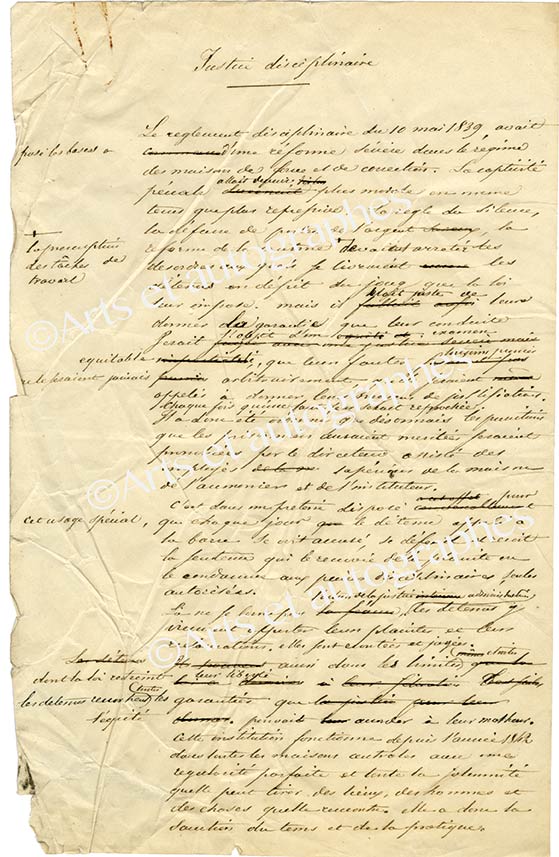 Justice disciplinaire
Le reglement disciplinaire du 10 mai 1839, avait
posé les bases d
d'une réforme sévère dans le régime
des maisons de force et de correction. La captivité
pénale allait devenir plus morale en même
tems que plus repressive. La règle du silence,
la défense de porter de l'argent, la
la prescription
des tâches de
travail
réforme de la cantine devaient arrêter les
desordres auxquels se livraient les
détenus en dépit du joug que la loi
leur impose. mais il était juste de leur
donner la garantie que leur conduite
serait l'objet d'un examen
équitable, que leurs fautes
ne seraient jamais
arbitrairement
appelés à donner leurs moyens de justification
chaque fois qu'une faute leur serait reprochée.
Il a donc été ordonné que désormais les punitions
que les détenus auraient méritées seraient
prononcées par le directeur assisté des
employés supérieurs de la maison
de l'aumonier et de l'instituteur.
C'est dans un prétoire disposé pour
cet usage spécial,
que chaque jour le détenu
la barre. Là soit accusé se défend
la sentence qui le renvoie de la poursuite ou
le condamne aux peines disciplinaires seules
autorisées.
administrative, les détenus y
viennent apporter leurs plaintes et leurs
réclamations. elles sont écoutées et jugées
aussi dans les limites
dont la loi restreint leur liberté
les détenus
toutes les
garanties que
l'équité
pouvait accorder à leur malheur.
Cette institution fonctionne depuis l'année 1842
dans toutes les maisons centrales avec une
regularité parfaite et toute la solemnité
qu'elle peut tirer des lieux, des hommes et
des choses qu'elle rencontre. elle a donc la
sanction du tems et de la pratique.
©Arts et autographes
©Arts et autographes
©Arts et autographes